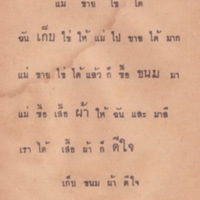 แม่ ขาย ไข่ ได้
ฉัน เก็บ ไข่ ให้ แม่ ไป ขาย ได้ มาก
แม่ ขาย ไข่ ได้ แล้ว ก็ ซื้อ ขนม มา
แม่ ซื้อ เสื้อ ผ้า ให้ ฉัน และ มาลี
เรา ได้ เสื้อ ผ้า ก็ ดีใจ
เก็บ ขนม ผ้า ดีใจ